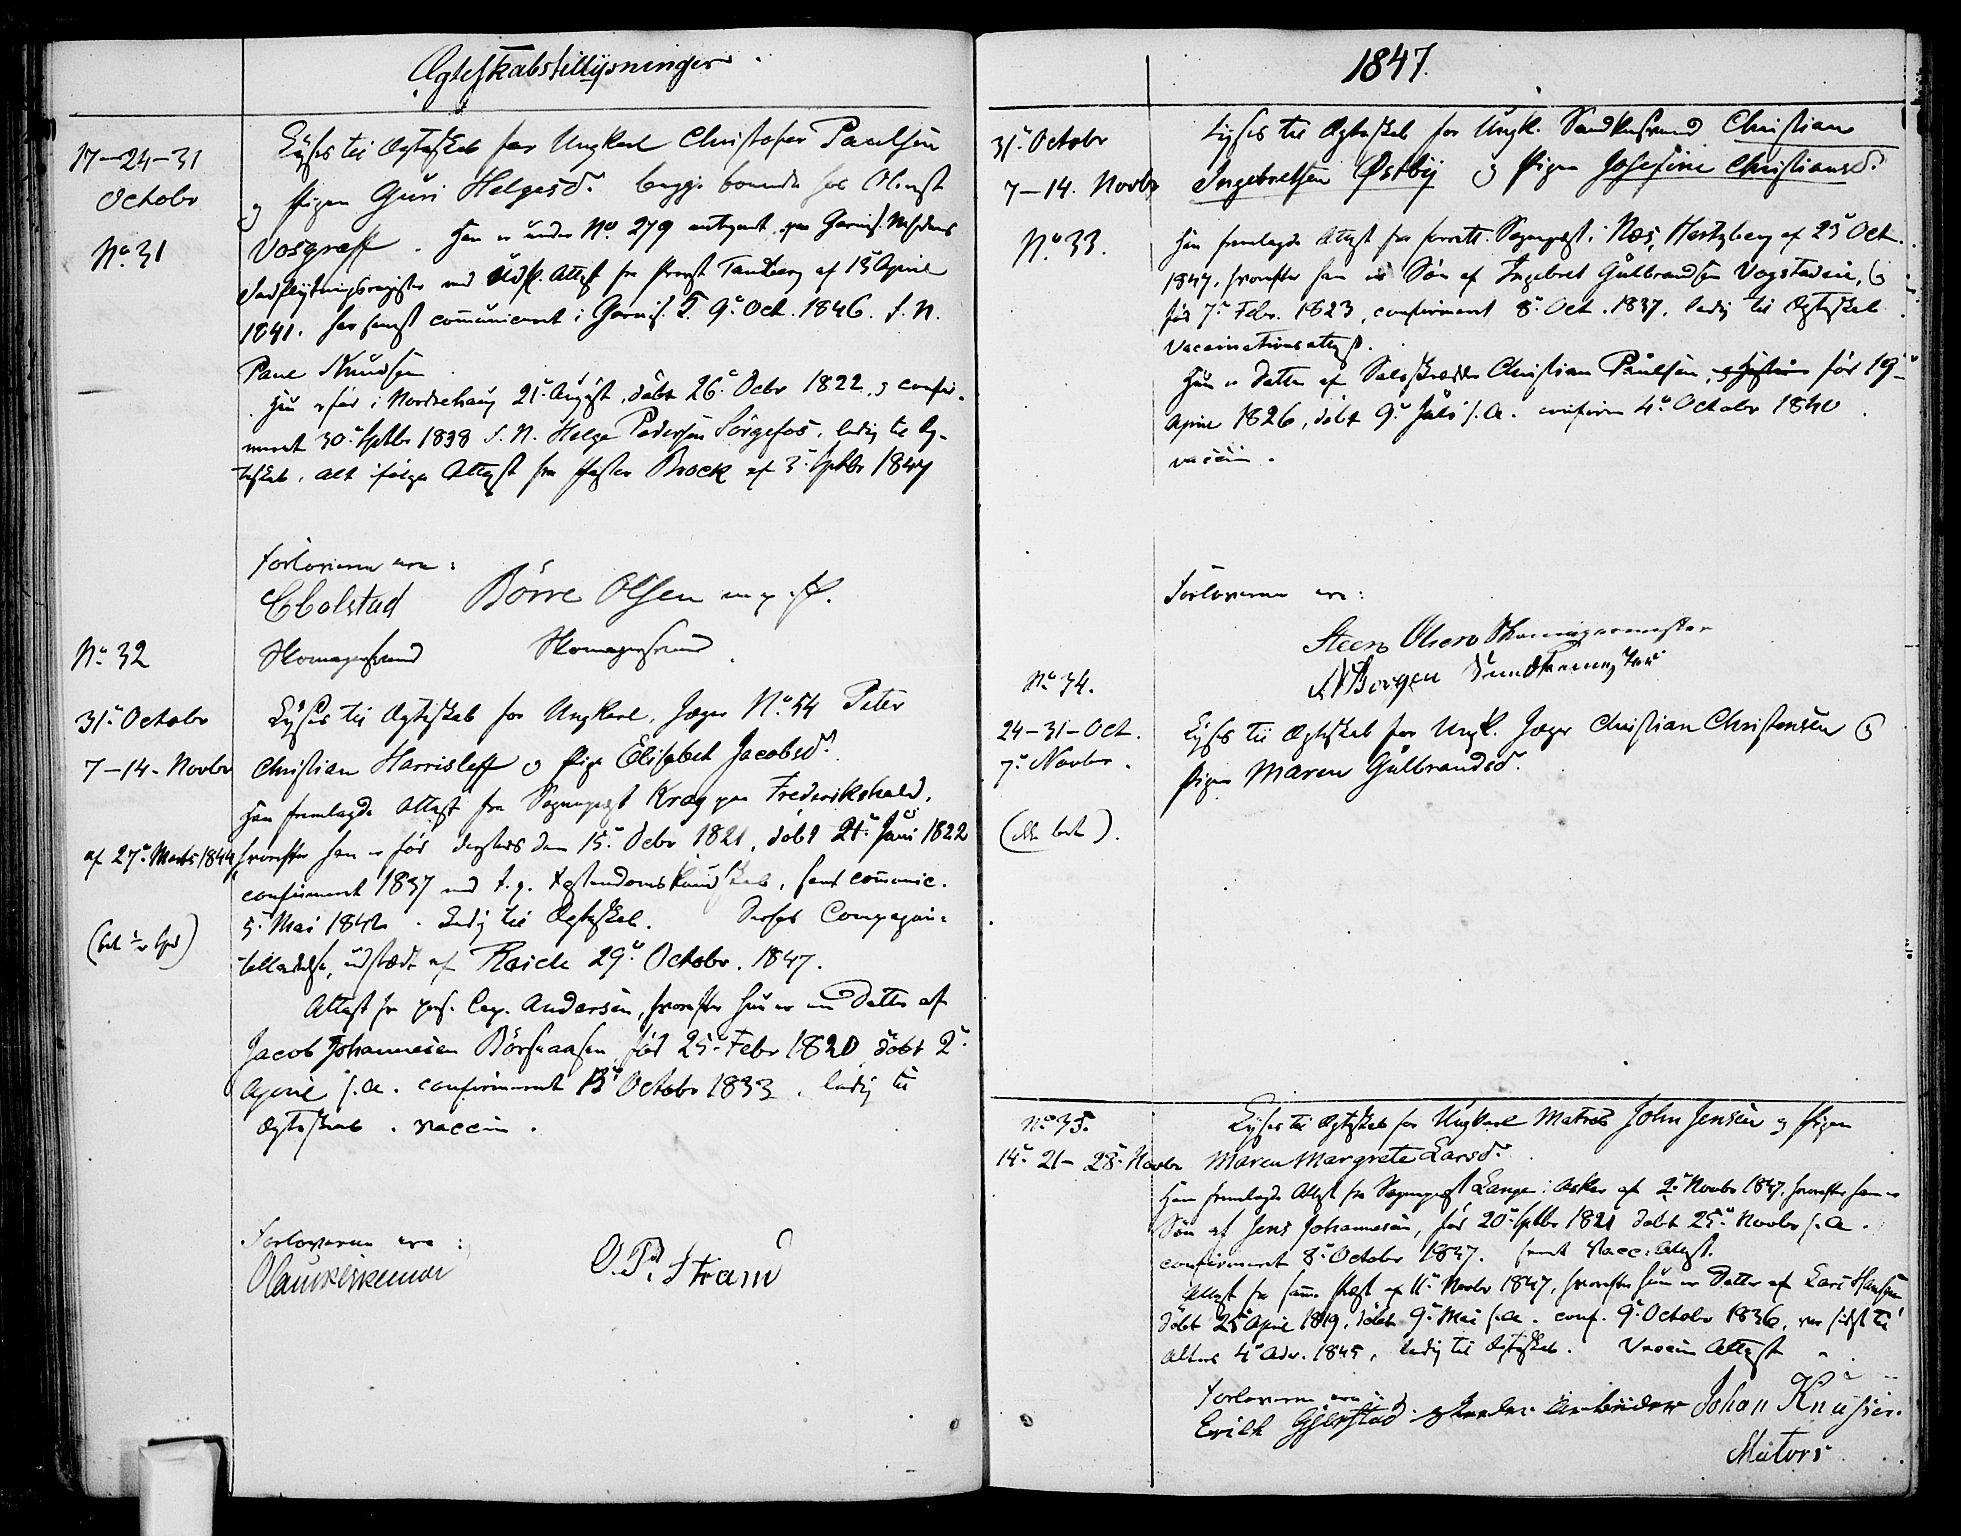 Ægteskabstillysninger.
17-24-31
Octobr
No. 31
Lyses til Ægteskab for Ungkarl Christofer Paulsen
og Pigen Guri Helgesd. begge boende hos
Vosgraff. Han er under No. 279 antegnet paa Garnis. Meniheds
Indflytningsregister med Udfl. Attest fra Provst Tandberg af 13 April
1841. har senest communiceret i Garnis. 9. Oct. 1846. S. N.
Paul Knudsen
Hun er født i Norderhaug 21. August, døbt 26. Octbr 1822, og confir-
meret 30. Septbr 1838 S. N. Helge Pedersen Sørgefos, ledig til Æg-
teskab, alt ifølge Attest fra Pastor Brock af 3. Septbr 1847
Forloverne ere:
C Bolstad Børre Olsen
Skomagersvend Skomagersvend
No. 32
31. Octobr
7-14. Novbr
Lyses til Ægteskab for Ungkarl, Jæger No. 54 Peter
Christian Harrisleff og Pige Elisabet Jacobsd.
Han fremlagde Attest fra Sognepræst Krag paa Frederikshald,
af 27. Marts 1844
hvorefter han er født dersteds den 15. Octbr 1821, døbt 21. Juni 1822
confirmeret 1837 med t. g. Christendomskundskab, senest communic.
5. Mai 1842. Ledig til Ægteskab. Compagni-
tilladelse, udstædt af Reich 29. Octobr. 1847.
Attest fra pers. Cap. Andersen, hvorefter hun er en Datter af
Jacob Johannesen Børsaasen, født 25. Febr 1820 døbt 2.
April s. A. confirmeret 13. Octobr 1833, ledig til
Ægteskab. vaccin.
Forloverne ere:
O. P. Strand
1847.
31. Octobr
7-14. Novbr
No. 33.
Lyses til Ægteskab for Ungk. Christian
Ingebretsen Østby og Pigen Josefine Christiansd.
Han fremlagde Attest fra Sognepræst i Næs, Hertzberg af 23 Oct.
1847, hvorefter han er Søn af Ingebret Gulbrandsen Vogstadeie, og
født 7. Febr. 1823, confirmeret 8. Oct. 1837, ledig til Ægteskab
Vaccinationsattest.
Hun er Datter af Christian Paulsen, født 19.
April 1826, døbt 9. Juli s. A. confirm 4. Octobr 1840.
vaccin.
Forloverne ere:
Steen Olsen
Borgen
No. 34.
24-31-Oct.
7. Novbr.
Lyses til Ægteskab for Ungk. Jæger Christian Christensen og
Pigen Maren Gulbrandsd.
No. 35.
14. 21- 28. Novbr
Lyses til Ægteskab for Ungkarl Matros John Jensen og Pigen
Maren Margrete Larsd.
Han fremlagde Attest fra Sognepræst Lange i Asker af 2. Novbr 1847, hvorefter han er
Søn af Jens Johannesen, født 20. Septbr 1821 døbt 25. Novbr s. A.
confirmeret 8. Octobr 1837. samt Vacc: Attest.
Attest fra samme Præst af 11. Novbr 1847, hvorefter hun er Datter af Lars Hansen
25 April 1819, døbt 9. Mai s. A. conf. 9. Octobr 1836, var sidst til
Alters 4. Adv. 1845, ledig til Ægteskab. Vaccin Attest
Forloverne ere
Erik Gjerstad Arbeider Johan Knusen.
Matros